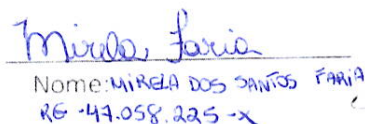 Mirela Faria
Nome: MIRELA DOS SANTOS FARIA
RG -47.058.225-X